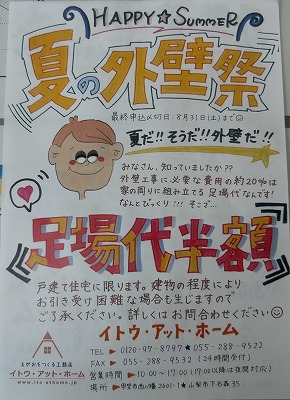 HAPPY☆SUMMER
夏の外壁祭
最終申込〆切日:8月31日(土)まで☺
夏だ!!そうだ!!外壁だ!!
みなさん、知っていましたか??
外壁工事に必要な費用の約20%は
家の周りに組み立てる 足場代なんです!
なんとびっくり!!! そこで…
足場代半額
戸建て住宅に限ります。建物の程度により
お引き受け困難な場合も生じますので
ご了承ください。詳しくはお問合わせください☺
イトウ・アット・ホーム
TEL ▶ 0120-97-8797 ★ 055-288-9522
FAX ▶ 055-288-9532 (24時間受付)
営業時間 ▶ 10:00~17:00 (17:00以降は夜間対応)
場所 ▶ 甲斐市西八幡2601-1 ★ 山梨市下石森35
えがおをつくる工務店
イトウ・アット・ホーム
www.ito-athome.jp